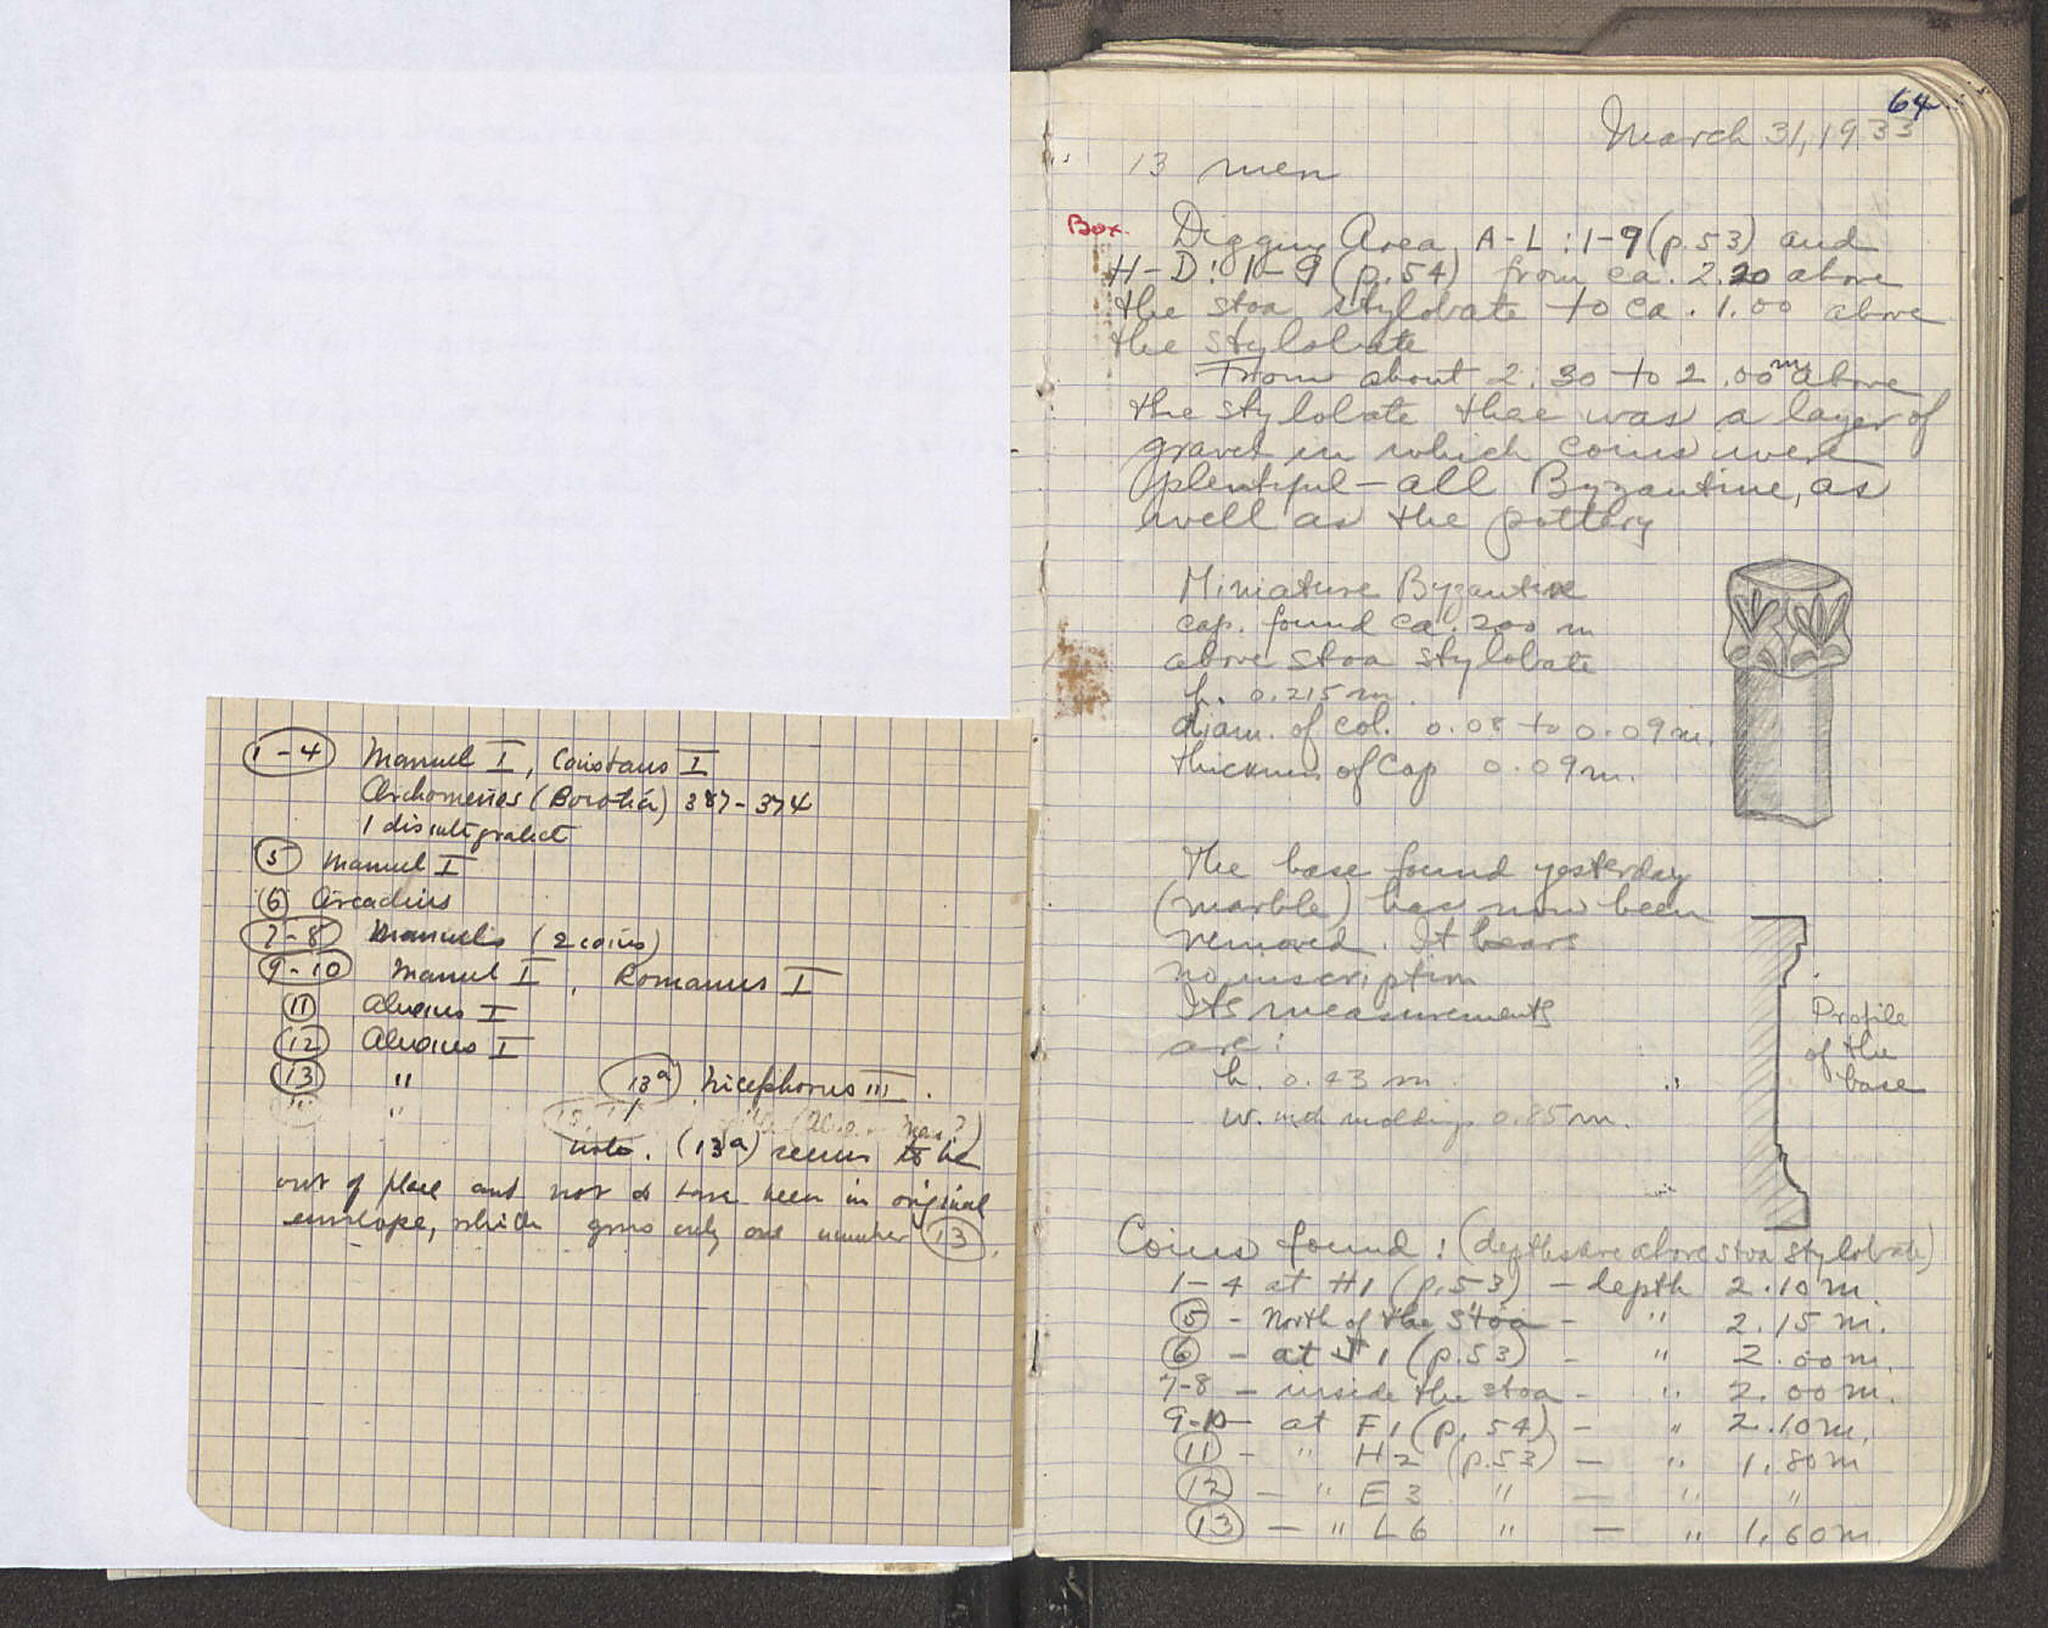 1-4 Manuel I, Constans I
Orchomenos (Boeotia) 387-374
1 disintegrated
5 Manuel I
6 Arcadius
7-8 Manuels (2 coins)
9-10 Manuel I, Romanus I
11 Alexius I
12 Alexius I
13 " 13a Nicephorus III.
"
note. (13a) seems to be
out of place and not to have been in original
envelope, which gives only one number 13.
64
March 31, 1933
13 men
Box. Digging Area A-L : 1-9 (p.53) and
H-D : 1-9 (p.54) from ca. 2.20 above
the stoa stylobate to ca. 1.00 above
the stylobate
From about 2.30 to 2.00 m above
the stylobate thee was a layer of
gravel in which coins were
plentiful - all Byzantine, as
well as the pottery
Miniature Byzantine
cap. found ca. 200 m
above stoa stylobate
h. 0.215 m.
diam. of col. 0.08 to 0.09 m.
thickness of cap 0.09 m.
The base found yesterday
(marble) has now been
removed. It bears
no inscription
Its measurements
are:
h. 0.43 m.
w. incl moldings 0.85 m.
Profile
of the
base
Coins found : (depths are above stoa stylobate)
1-4 at H1 (p.53) - depth 2.10 m.
5 - North of the Stoa - " 2.15 m.
6 - at J1 (p.53) - " 2.00 m.
7-8 - inside the stoa - " 2.00 m.
9-10 - at F1 (p. 54) - " 2.10 m.
11 - " H2 (p.53) - " 1.80 m
12 - " E3 " - " "
13 - " L6 " - " 1.60 m.